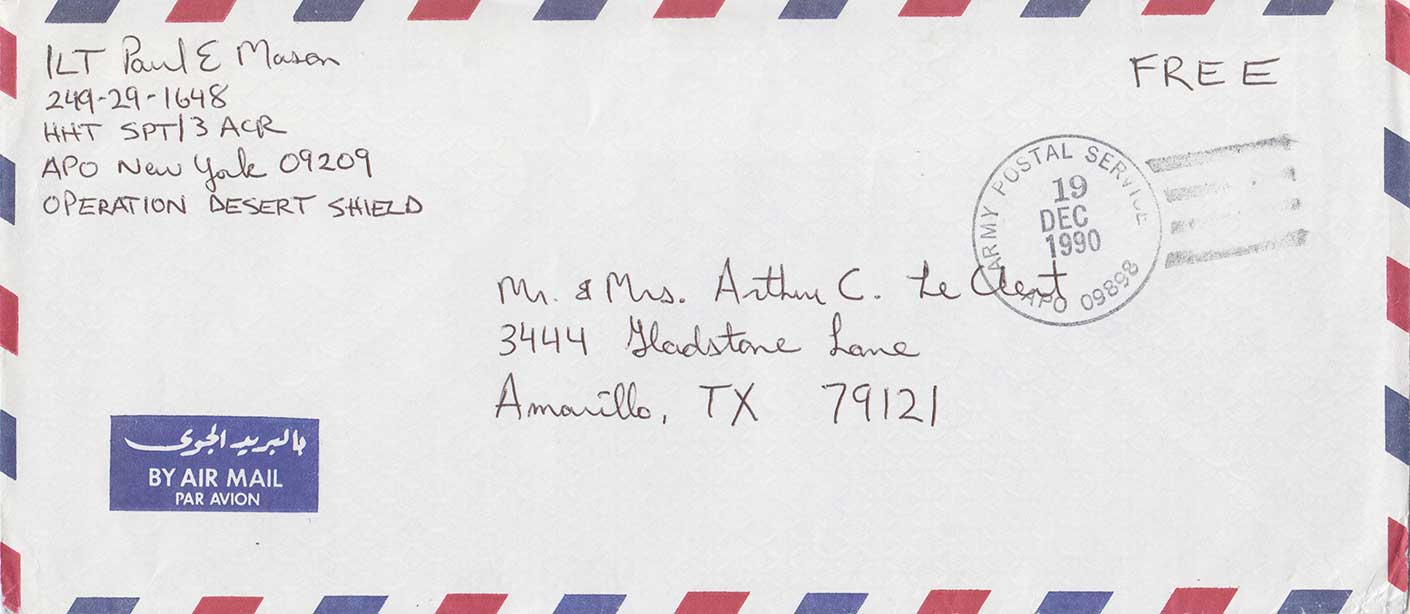 1LT Paul E Mason
249-29-1648
HHT SPT/3 ACR
APO New York 09209
OPERATION DESERT SHIELD
FREE
ARMY POSTAL SERVICE
19
DEC
1990
APO 09898
Mr. & Mrs. Arthur C. Le Clert
3444 Gladstone Lane
Amarillo, TX 79121
بالبريد الجوى
BY AIR MAIL
PAR AVION